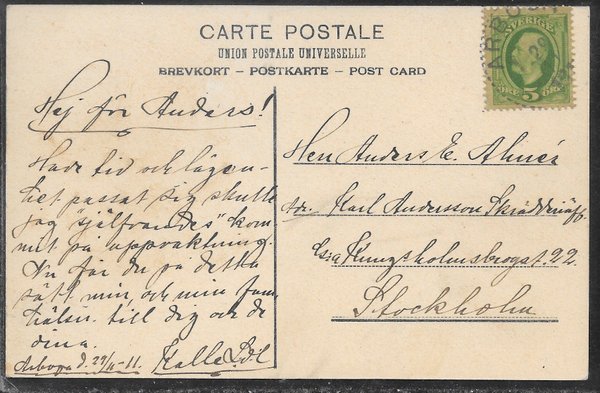 CARTE POSTALE
UNION POSTALE UNIVERSELLE
BREVKORT – POSTKARTE – POST CARD
SVERIGE
ÖRE 5 ÖRE
Hej för Anders!
Hade tid och lägen-
het passat sig skulle
jag "själfvandes" kom-
mit på uppvaktning.
Nu får du på detta
sätt min och min fam
hälsn. till dig och de
dina.
Arboga d. 29/11-11. Kalle
Herr Anders E. Almér
Karl Andersson Skrädderiaff.
Kungsholmsbrogat. 22
Stockholm